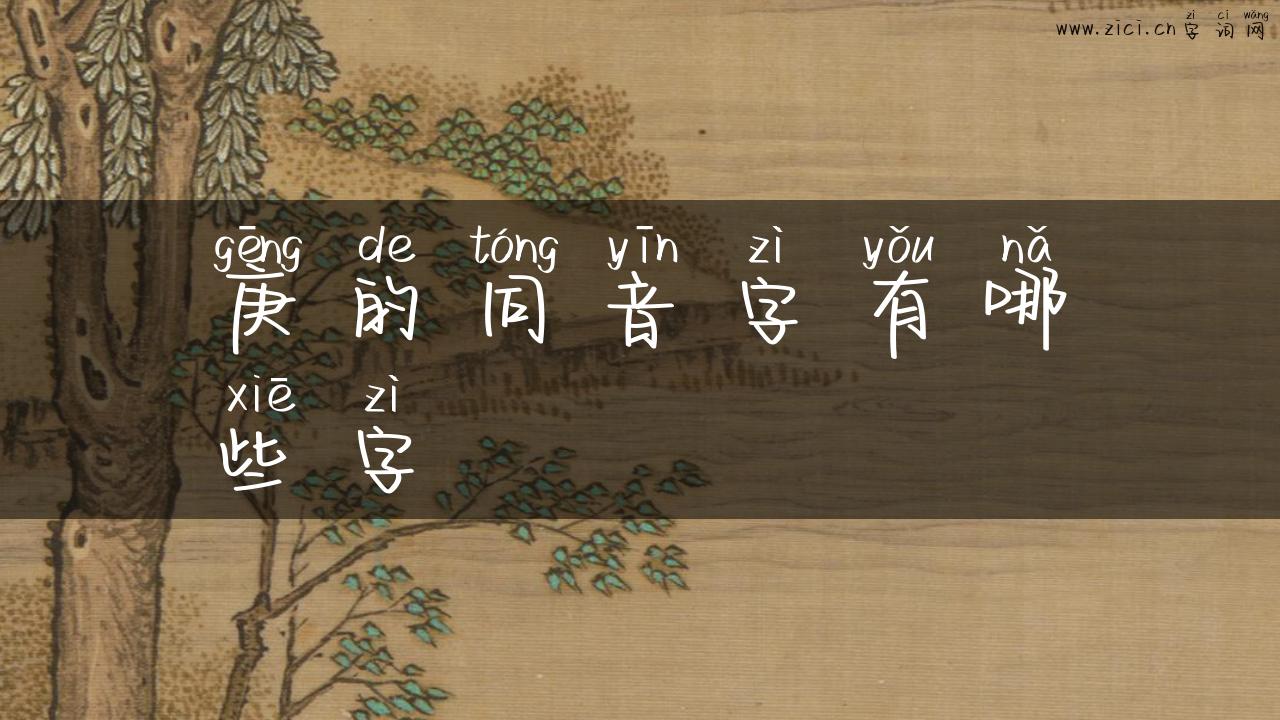 zì cí wǎng
www.zici.cn 字 词 网
gēng de tóng yīn zì yǒu nǎ
庚 的 同 音 字 有 哪
xiē zì
些 字